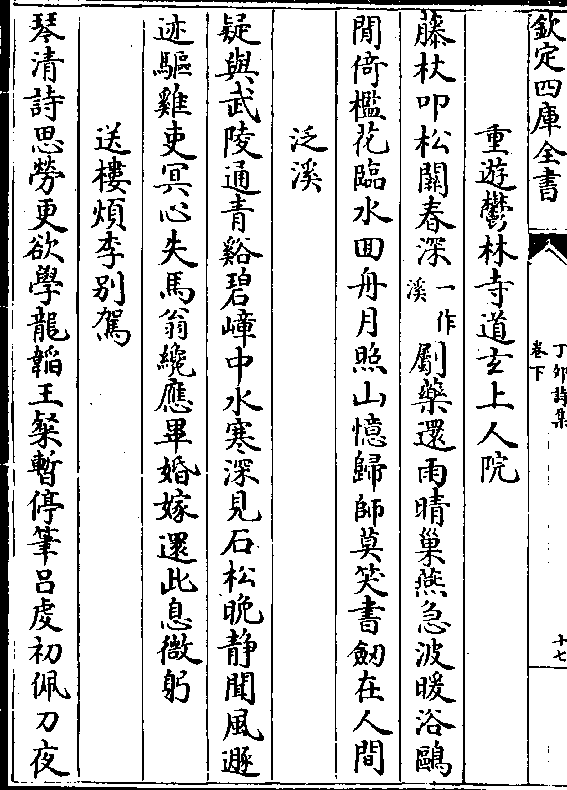 欽定四庫全書
丁卯詩集
卷下
十七
重遊鬱林寺道玄上人院
藤杖叩松關春深一作溪劚藥還雨晴巢燕急波暖浴鷗
閒倚檻花臨水回舟月照山憶歸師莫笑書劒在人間
泛溪
疑與武陵通青谿碧嶂中水寒深見石松晚静聞風遯
迹驅雞吏冥心失馬翁纔應畢婚嫁還此息微躬
送樓煩李别駕
琴清詩思勞更欲學龍韜王粲暫停筆吕虔初佩刀夜